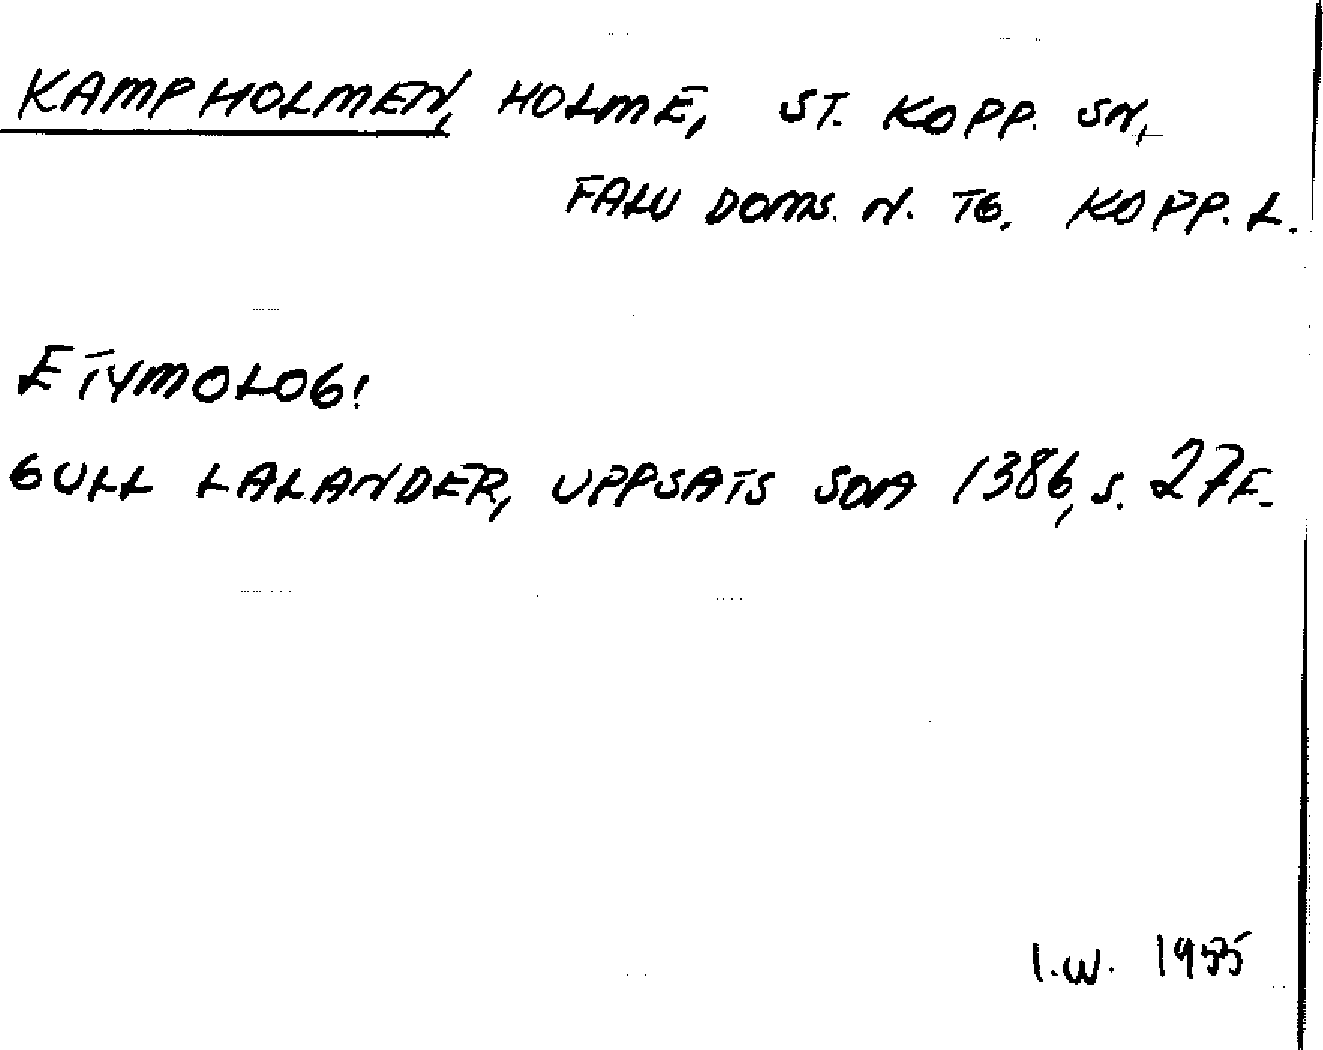 KAMPHOLMEN, HOLME, ST. KOPP. SN,
FALU DOMS. N. TG. KOPP. L.
ETYMOLOGI
GULL LALANDER, UPPSATS SOA 1386, s. 27F.
I.W. 1955